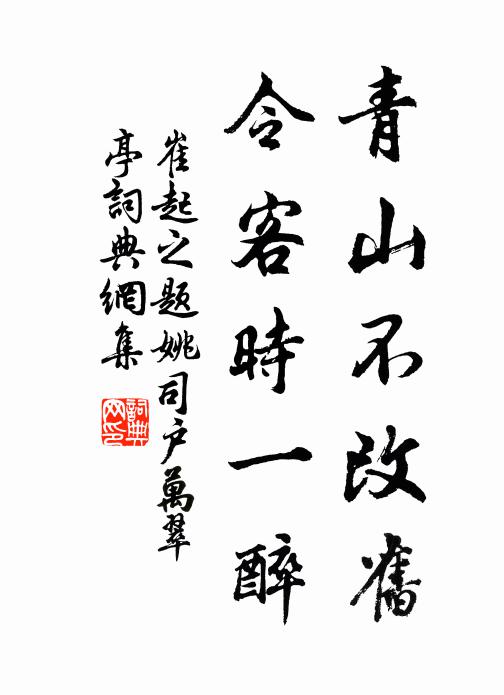 青山不改舊
令客時一醉
崔起之題姚司戶萬翠
亭詞典網集
詞典
网印